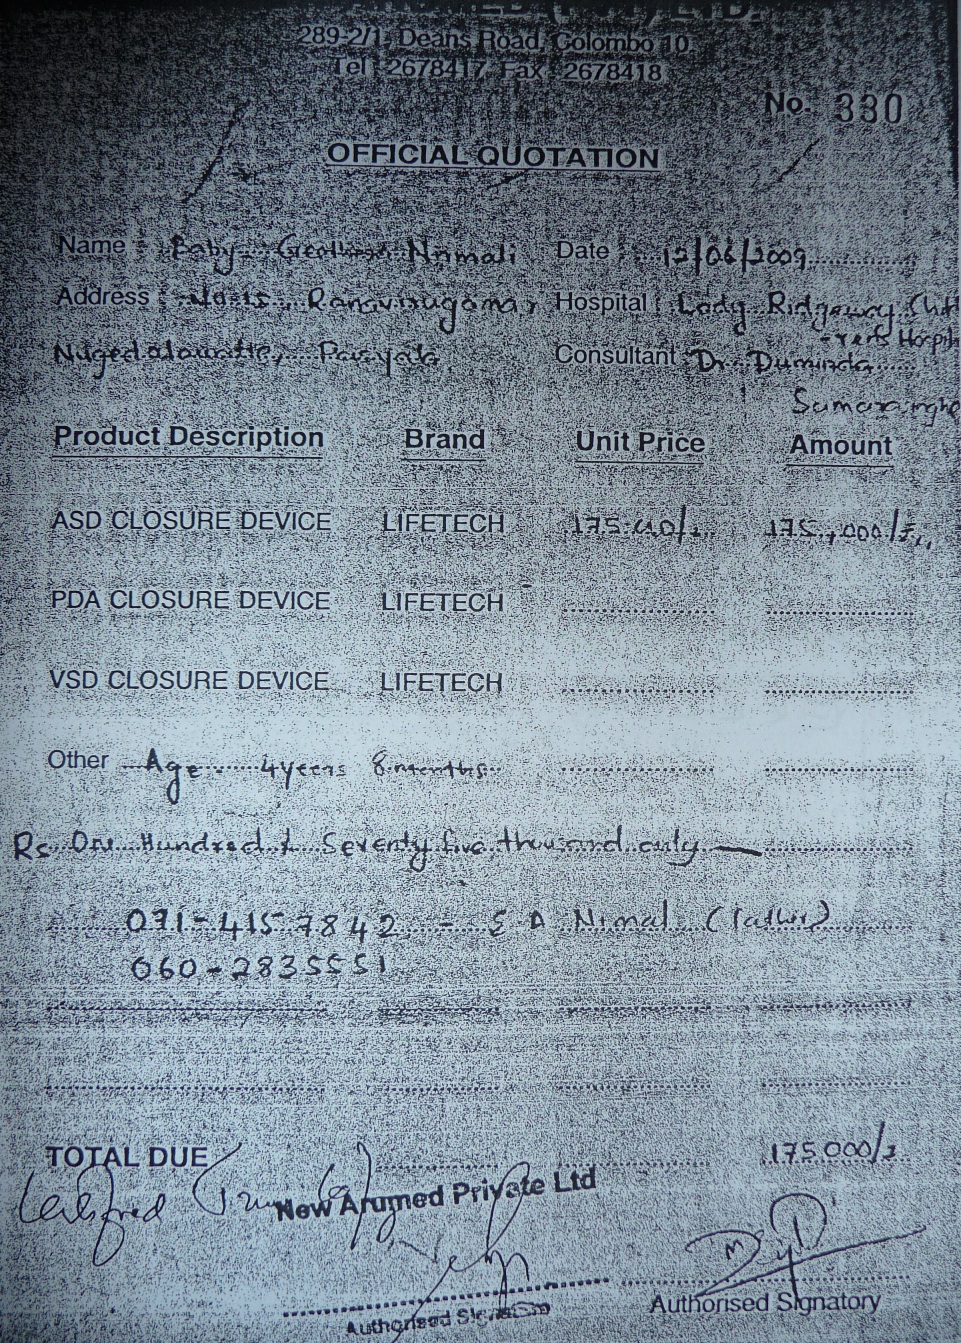 LTD.
289-2/1, Deans Road, Colombo 10.
Tel : 2678417, Fax : 2678418
No. 330
OFFICIAL QUOTATION
Name : Baby Nirmali Date : 12/06/2009
Address : Ranavirugama, Hospital : Lady Ridgeway
Consultant : Dr. Duminda
Product Description Brand Unit Price Amount
ASD CLOSURE DEVICE LIFETECH 175,000/=
PDA CLOSURE DEVICE LIFETECH
VSD CLOSURE DEVICE LIFETECH
Other Age 4years 8months
Rs. One Hundred & Seventy five thousand only
071-4157842 - E A Nimal (father)
060-2835551
TOTAL DUE 175000/=
Certified True Copy
New Arumed Private Ltd
Authorised Signatory Authorised Signatory